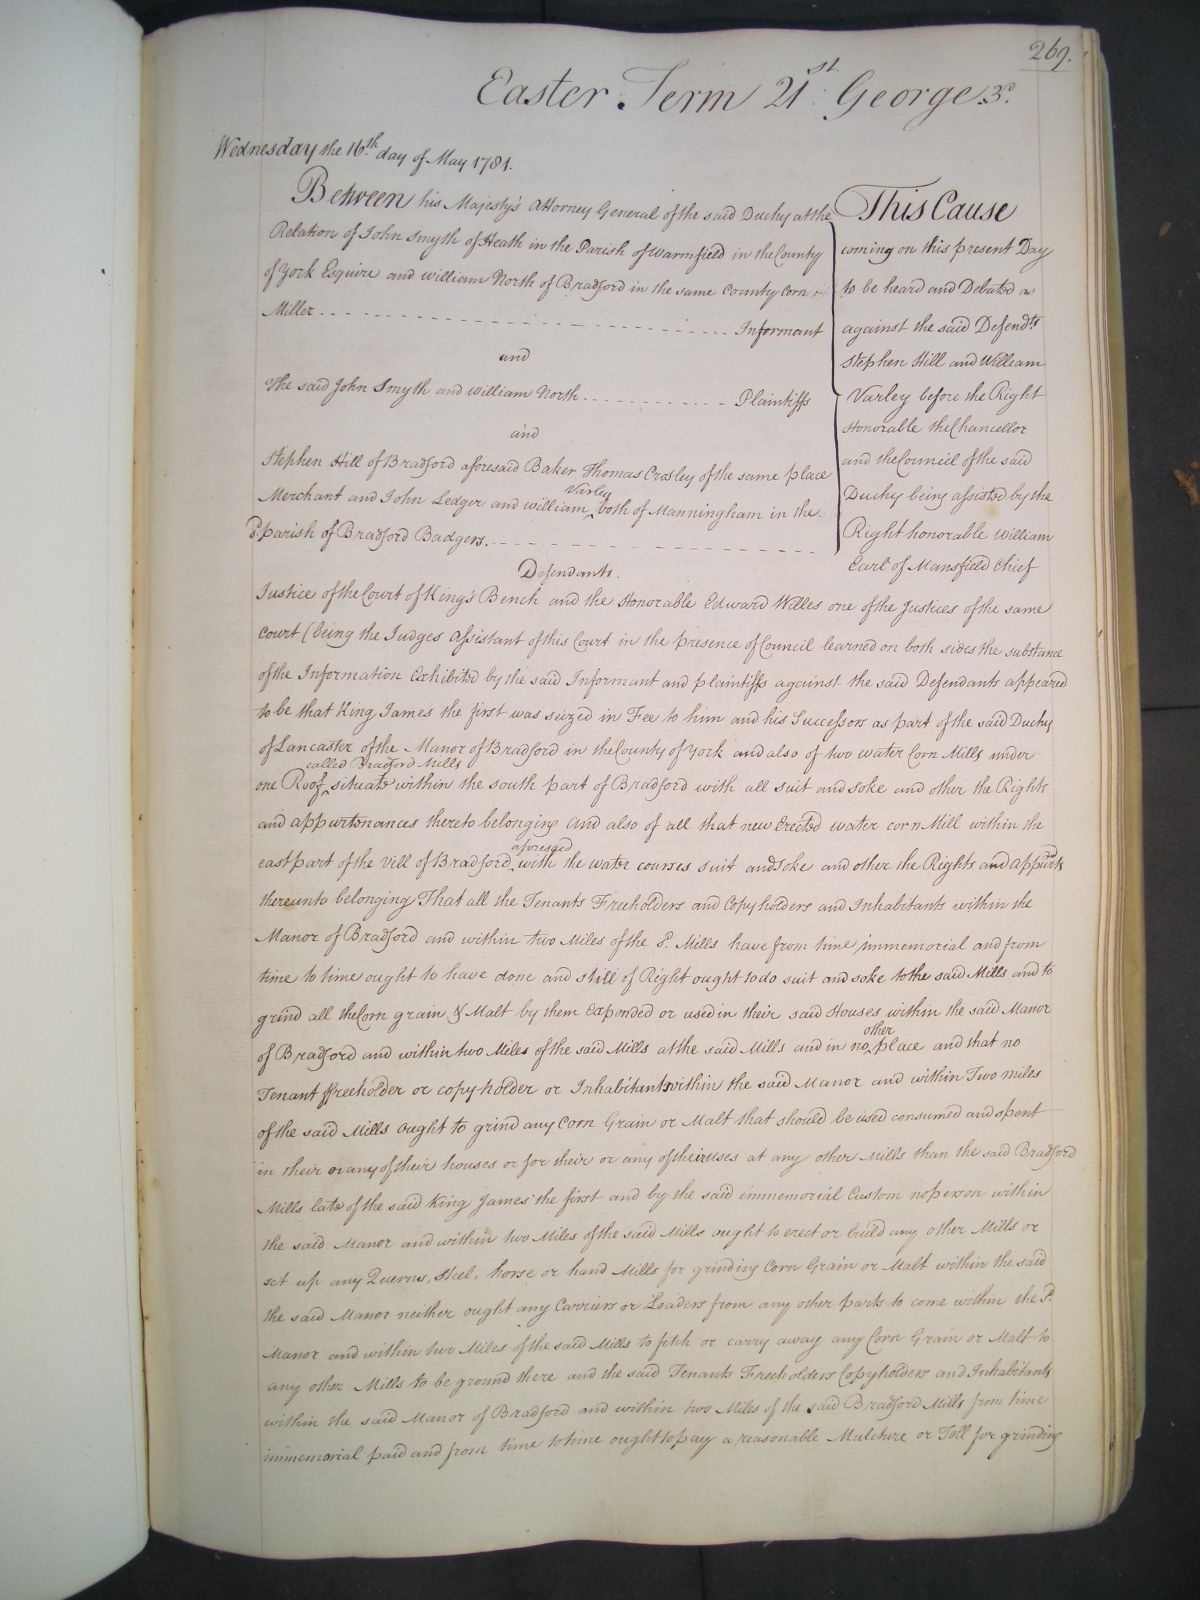 269.
Easter Term 21st George 3d.
Wednesday the 16th day of May 1781.
Between his Majesty's Attorney General of the said Duchy at the
Relation of John Smyth of Heath in the Parish of Warmfield in the County
of York Esquire and William North of Bradford in the same County Corn
Miller - - - - Informant
and
The said John Smyth and William North - - - - Plaintiffs
and
Stephen Hill of Bradford aforesaid Baker Thomas Crosley of the same place
Merchant and John Ledger and William Varley both of Manningham in the
Parish of Bradford Badgers. - - - -
Defendants.
This Cause
coming on this present Day
to be heard and Debated as
against the said Defendts
Stephen Hill and William
Varley before the Right
Honorable the Chancellor
and the Council of the said
Duchy being assisted by the
Right honorable William
Earl of Mansfield Chief
Justice of the Court of King's Bench and the Honorable Edward Willes one of the Justices of the same
Court (being the Judges Assistant of this Court in the presence of Council learned on both sides the substance
of the Information Exhibited by the said Informant and plaintiffs against the said Defendants appeared
to be that King James the first was seized in Fee to him and his Successors as part of the said Duchy
of Lancaster of the Manor of Bradford in the County of York and also of two water Corn Mills under
one Roof called Bradford Mills situate within the south part of Bradford with all suit and soke and other the Rights
and appurtonances thereto belonging And also of all that new Erected water corn Mill within the
east part of the Vill of Bradford aforesaid with the water courses suit and soke and other the Rights and appurts
thereunto belonging That all the Tenants Freeholders and Copyholders and Inhabitants within the
Manor of Bradford and within two Miles of the sd. Mills have from time immemorial and from
time to time ought to have done and still of Right ought to do suit and soke to the said Mills and to
grind all the Corn grain & Malt by them Expended or used in their said Houses within the said Manor
of Bradford and within two Miles of the said Mills at the said Mills and in no other place and that no
Tenant ffreeholder or copyholder or Inhabitants within the said Manor and within Two miles
of the said Mills ought to grind any Corn Grain or Malt that should be used consumed and spent
in their or any of their houses or for their or any of their uses at any other Mills than the said Bradford
Mills late of the said King James the first and by the said immemorial Custom no person within
the said Manor and within two Miles of the said Mills ought to erect or build any other Mills or
set up any Querns, Steel, horse or hand Mills for grinding Corn Grain or Malt within the said
the said Manor neither ought any Carriers or Loaders from any other parts to come within the sd.
Manor and within two Miles of the said Mills to fetch or carry away any Corn Grain or Malt to
any other Mills to be ground there and the said Tenants Freeholders Copyholders and Inhabitants
within the said Manor of Bradford and within two Miles of the said Bradford Mills from time
immemorial paid and from time to time ought to pay a reasonable Mulcture or Toll for grinding